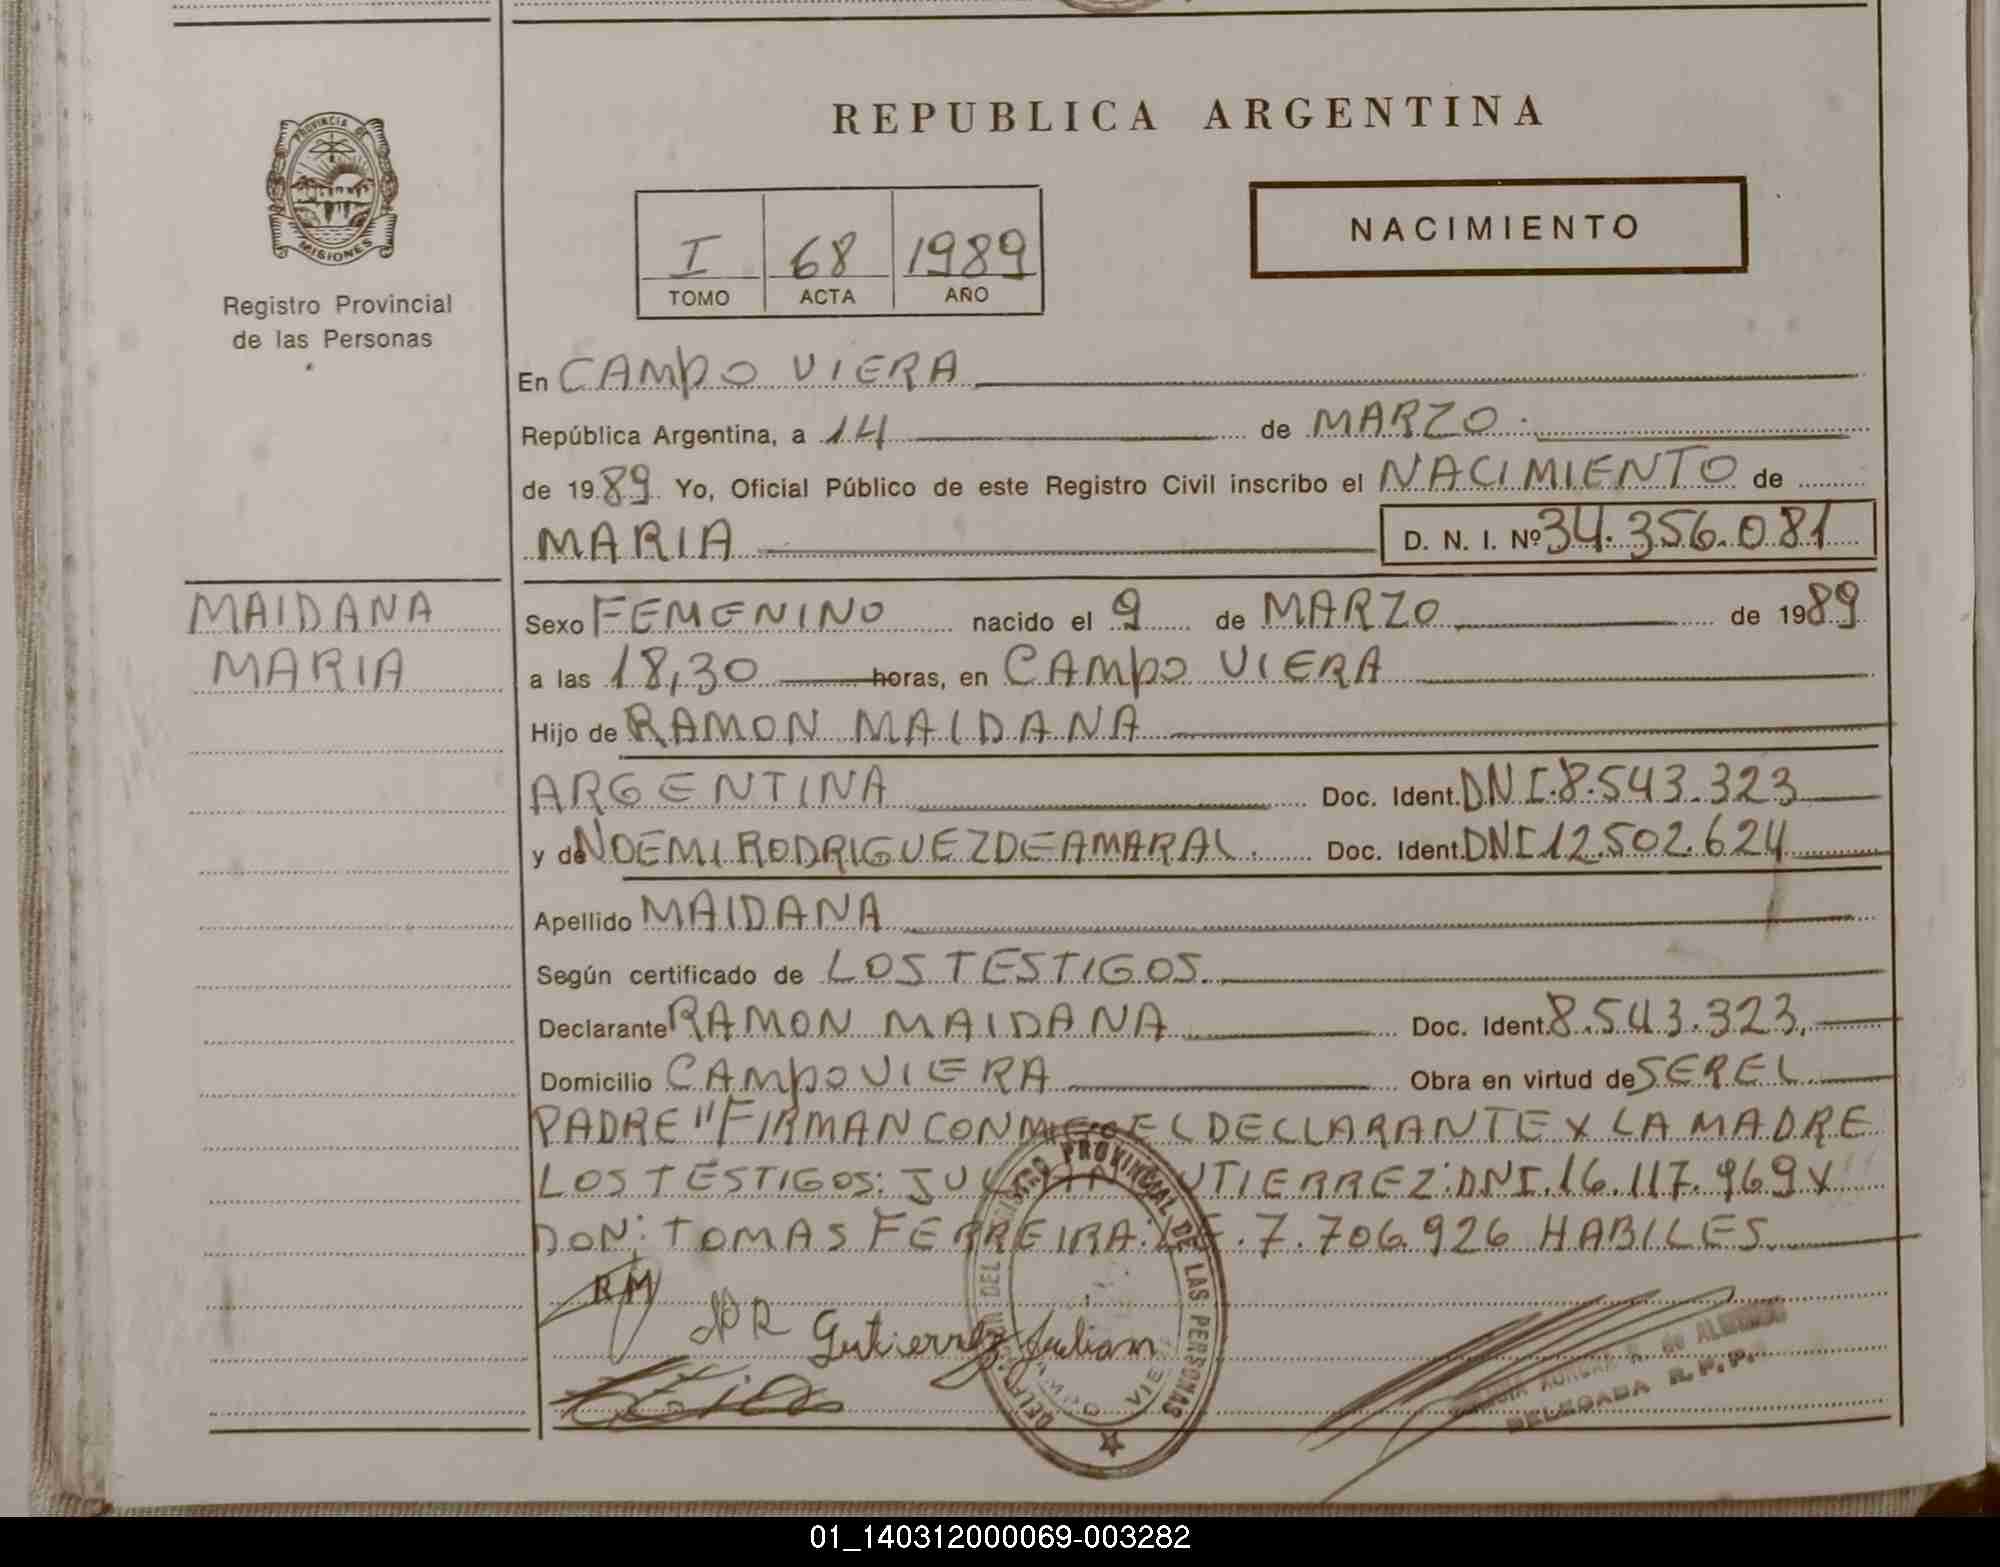 PROVINCIA DE
MISIONES
Registro Provincial
de las Personas
REPUBLICA ARGENTINA
I 68 1989
TOMO ACTA AÑO
NACIMIENTO
En CAMPO VIERA
República Argentina, a 14 de MARZO.
de 1989 Yo, Oficial Público de este Registro Civil inscribo el NACIMIENTO de
MARIA D. N. I. Nº 34.356.081
MAIDANA
MARIA
Sexo FEMENINO nacido el 9 de MARZO de 1989
a las 18,30 horas, en CAMPO VIERA
Hijo de RAMON MAIDANA
ARGENTINA Doc. Ident. DNI.8.543.323
y de NOEMI RODRIGUEZ DE AMARAL. Doc. Ident. DNI 12.502.624
Apellido MAIDANA
Según certificado de LOS TESTIGOS.
Declarante RAMON MAIDANA Doc. Ident. 8.543.323.
Domicilio CAMPO VIERA Obra en virtud de SER EL
PADRE" FIRMAN CONMIGO EL DECLARANTE Y LA MADRE
LOS TESTIGOS: GUTIERREZ: DNI.16.117.969 Y
DON: TOMAS FERREIRA: 7.706.926 HABILES.
RM
NR Gutierrez Julian
DEL REGISTRO PROVINCIAL DE LAS PERSONAS
CAMPO VIERA
DELEGADA R.P.P.
01_140312000069-003282